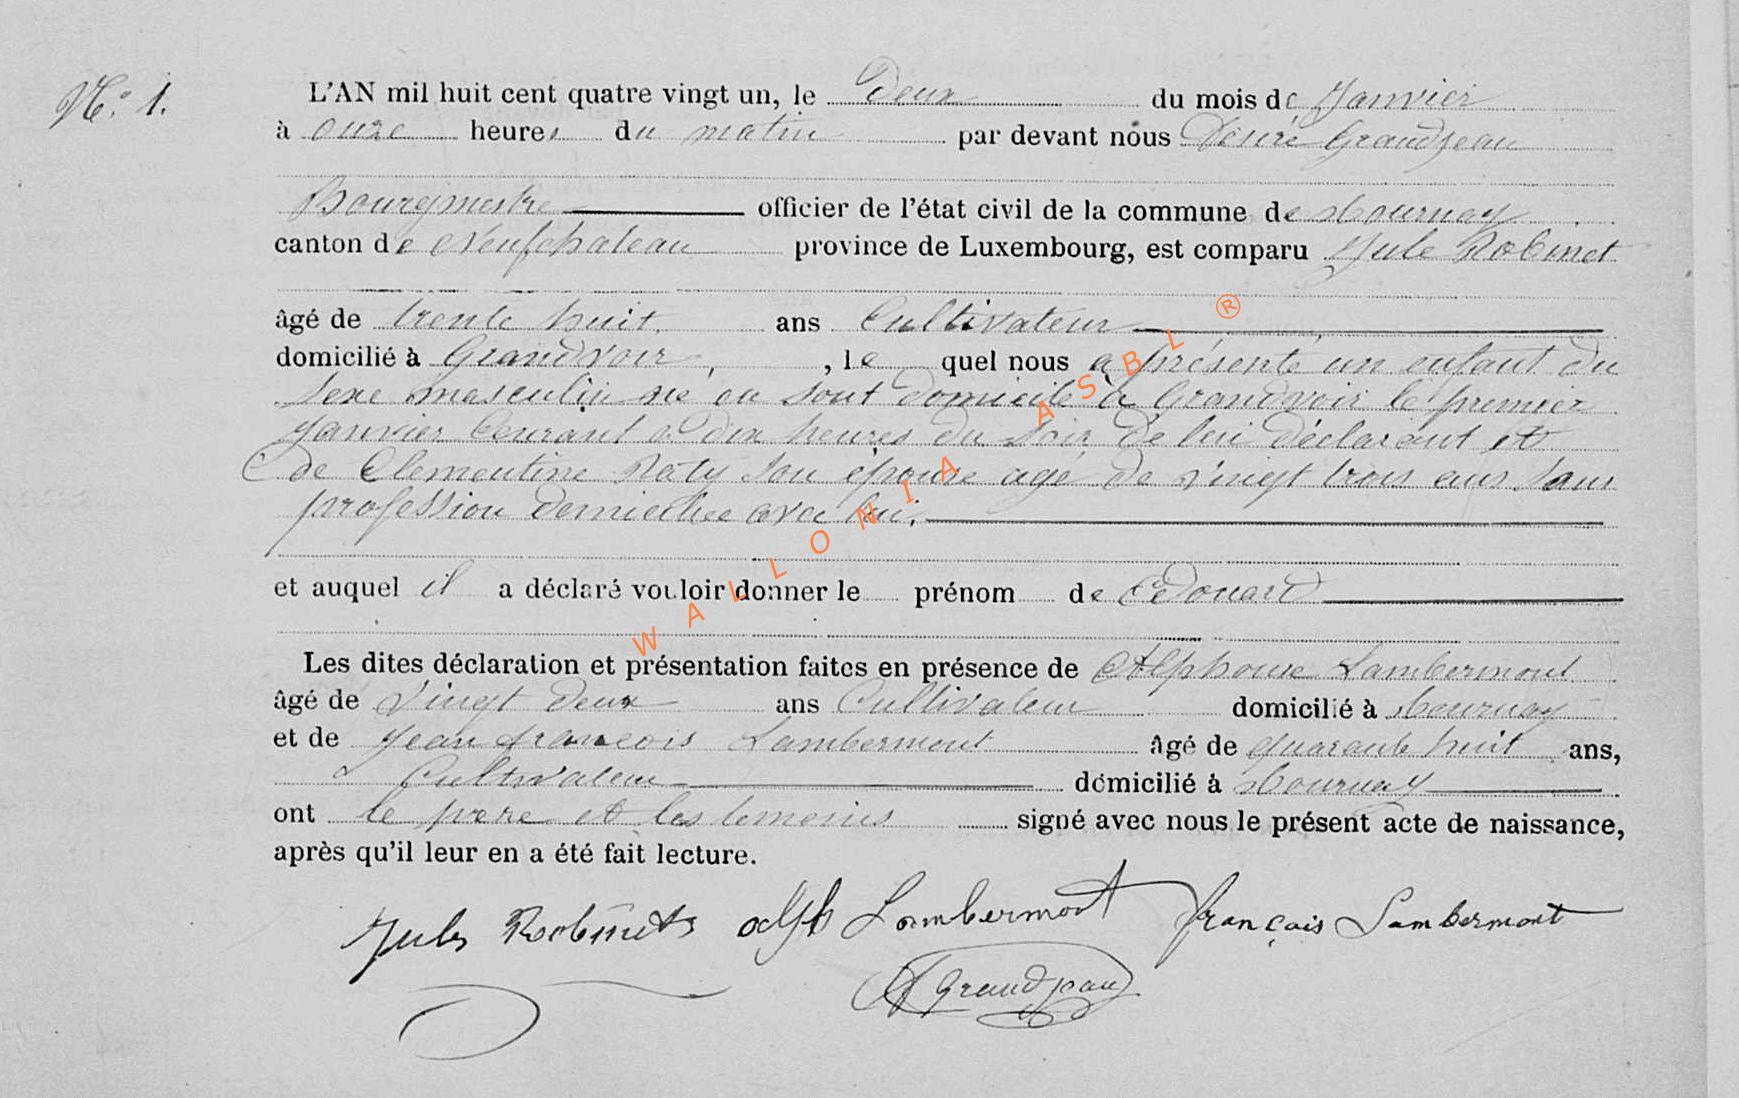 N.° 1.
L'AN mil huit cent quatre vingt un, le Deux du mois de Janvier
à onze heures du matin par devant nous Désiré Grandjean
Bourgmestre officier de l'état civil de la commune de Tournay
canton de Neufchateau province de Luxembourg, est comparu Jule Robinet
âgé de trente huit ans Cultivateur
domicilié à Grandvoir, , le quel nous a présenté un enfant du
sexe masculin né en sont domicile à Grandvoir le premier
Janvier Courant a dix heures du soir de lui déclarant et
de Clementine Raty son épouse agé de vingt trois ans sans
profession domiciliee avec lui.
et auquel il a déclaré vouloir donner le prénom de Edouard
Les dites déclaration et présentation faites en présence de Alphonse Lambermont
âgé de vingt deux ans Cultivateur domicilié à Tournay
et de Jean françois Lambermont âgé de quarante huit ans,
Cultivateur domicilié à Tournay
ont le père et les temoins signé avec nous le présent acte de naissance,
après qu'il leur en a été fait lecture.
Jules Robinets Alph Lambermont françois Lambermont
Grandjean
WALLONIA ASBL ®